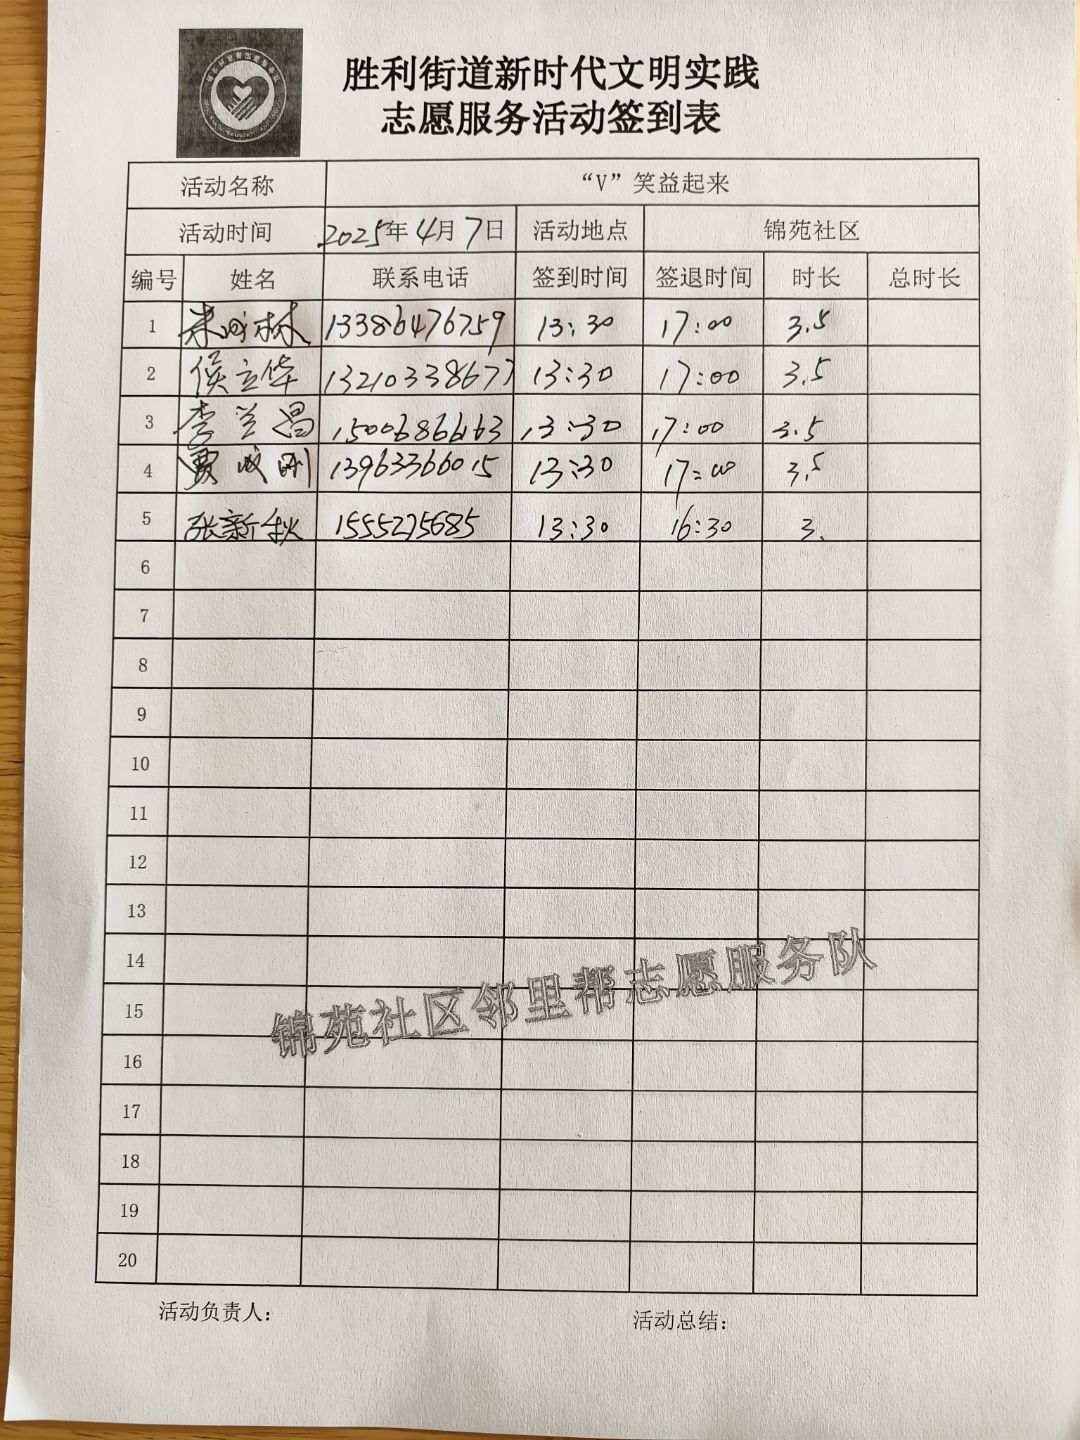 胜利街道新时代文明实践
志愿服务活动签到表
活动名称 “V”笑益起来
活动时间 2025年4月7日 活动地点 锦苑社区
编号 姓名 联系电话 签到时间 签退时间 时长 总时长
1 13386476759 13:30 17:00 3.5
2 侯立华 13210338677 13:30 17:00 3.5
3 李兰昌 15006866163 13:30 17:00 3.5
4 贾成刚 13963366015 13:30 17:00 3.5
5 张新秋 13:30 16:30 3.
6
7
8
9
10
11
12
13
14
锦苑社区邻里帮志愿服务队
15
16
17
18
19
20
活动负责人: 活动总结: